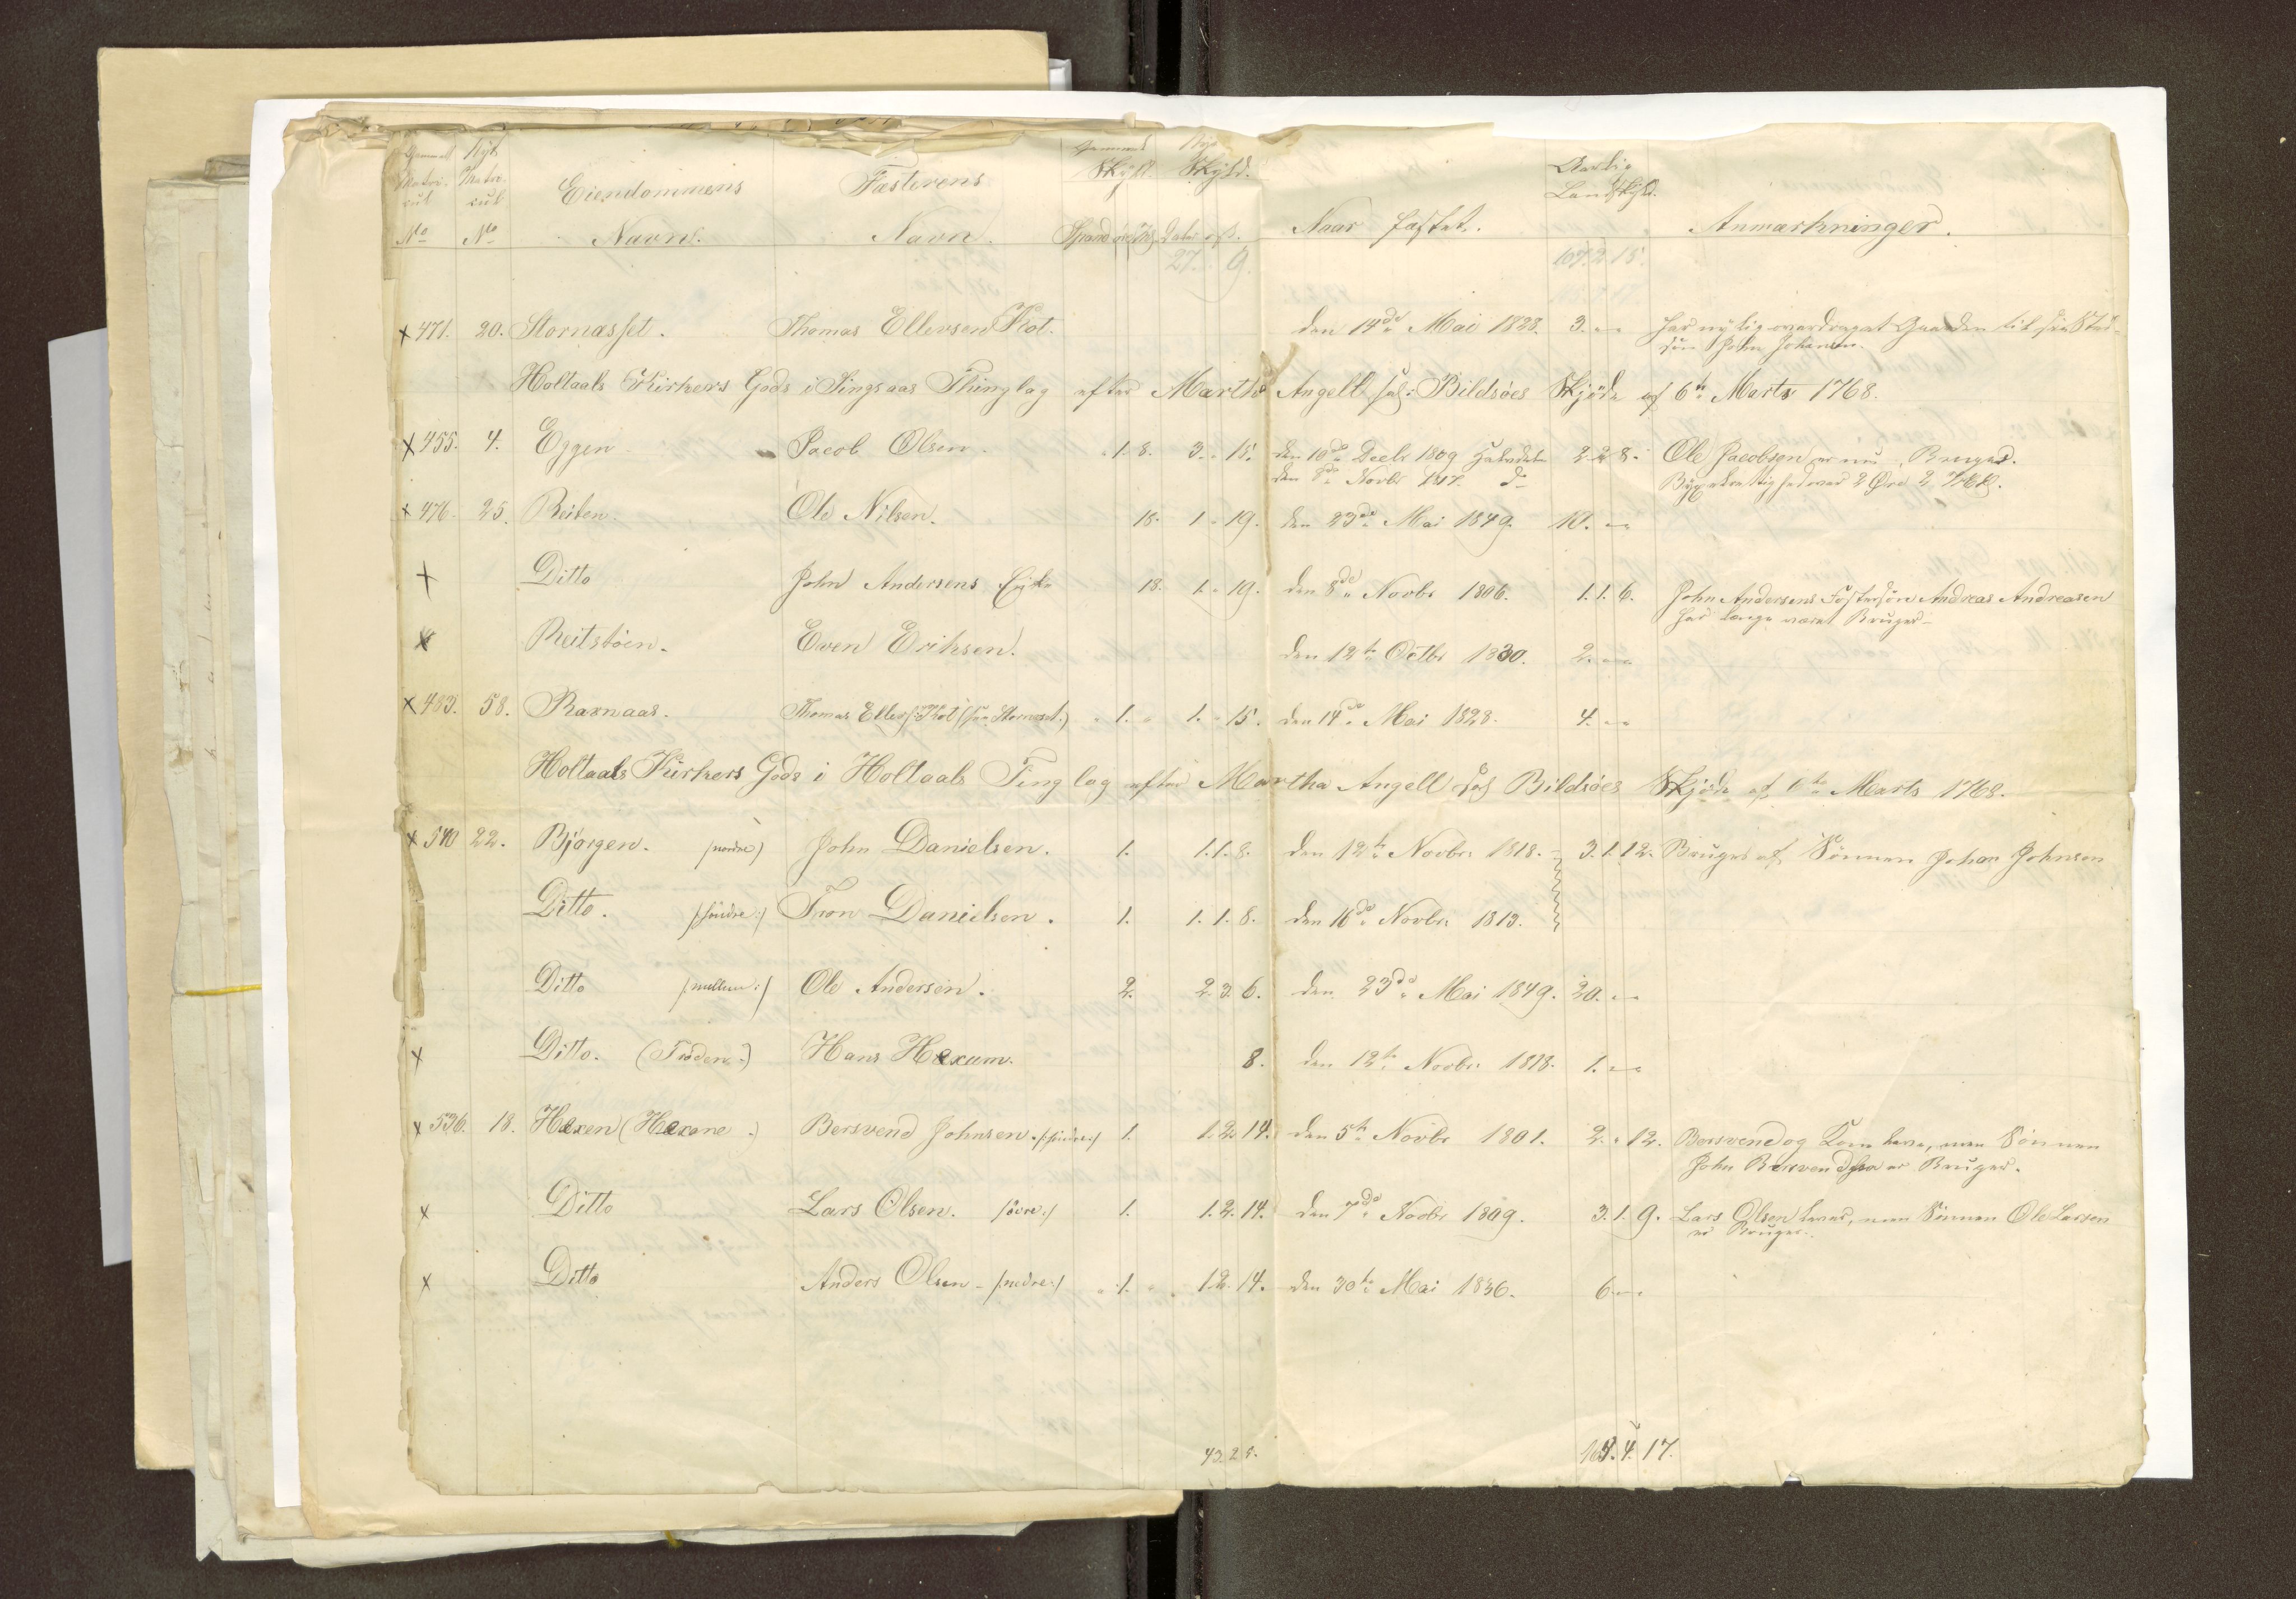 Gammel Nye Gammel Nye Aarlig
Matri- Matri- Eiendommens Fæsterens Skyld. Skyld. Landskyld.
cul cul
No No Navn. Navn. Spand Daler Naar fæstet. Anmærkninger.
27. " 9. 107. 2. 18.
x 471. 20. Stornæsset. Thomas Ellevsen Kot. den 14de Mai 1828. 3. " " har nylig overdraget Gaarden til sin Sted-
søn John Johnsen.
Holtaals Kirkers Gods i Singsaas Thinglag efter Martha Angell sal: Bildsøes Skjøde af 6te Marts 1768.
x 455. 4. Eggen Jacob Olsen. " 1. 8. 3. " 18. den 10de Decbr 1809 Halvdelen 2. 2. 8. Ole Jacobsen er nu Bruger.
den 8de Novbr 1817. do Bygselraadighed over 2 Øre 2 Mkl.
x 476. 25. Reiten. Ole Nilsen. 18. 1. " 19. den 23de Mai 1849. 10. " "
x Ditto John Andersens Enke 18. 1. " 19. den 8de Novbr 1806. 1. 1. 6. John Andersens Fostersøn Andreas Andreasen
har længe været Bruger.
x Reitstøen. Even Erichsen. den 12te Octbr 1830. 2. " "
x 483. 58. Ramnaas. Thomas Ellevs: Kot (paa Stornæset.) " 1. " 1. " 15. den 14de Mai 1828. 4. " "
Holtaals Kirkers Gods i Holtaals Tinglag efter Martha Angell sal Bildsøes Skjøde af 6te Marts 1768.
x 540 22. Bjørgen. (nordre) John Danielsen. 1. 1. 1. 8. den 12te Novbr. 1818. 3. 1. 12. Bruges af Sønnen Johan Johnsen
Ditto. /:søndre:/ Tron Danielsen. 1. 1. 1. 8. den 16de Novbr. 1813.
Ditto /:mellem:/ Ole Andersen. 2. 2. 3. 6. den 23de Mai 1849. 20. " "
x Ditto. Hans Hexum. 8. den 12te Novbr. 1818. 1. " "
x 536. 18. Hexen (Hexane.) Bersvend Johnsen. /:søndre:/ 1. 1. 2. 14. den 5te Novbr 1801. 2. " 12. Bersvend og Kone leve, men Sønnen
John Bersvendsen er Bruger.
x Ditto Lars Olsen. /øvre:/ 1. 1. 2. 14. den 7de Novbr 1809. 3. 1. 9. Lars Olsen lever, men Sønnen Ole Larsen
er Bruger.
x Ditto Anders Olsen - /nedre:/ " 1. " 1. 2. 14. den 30te Mai 1836. 6. " "
43. 2. 5. 4. 17.